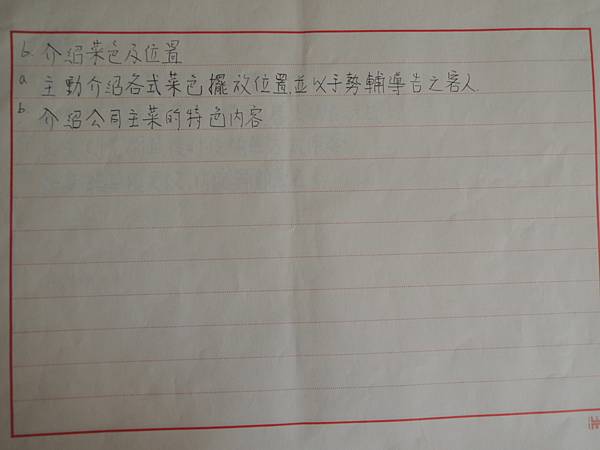 6. 介紹菜色及位置
a 主動介紹各式菜色擺放位置,並以手勢輔導告之客人.
b 介紹公司主菜的特色內容